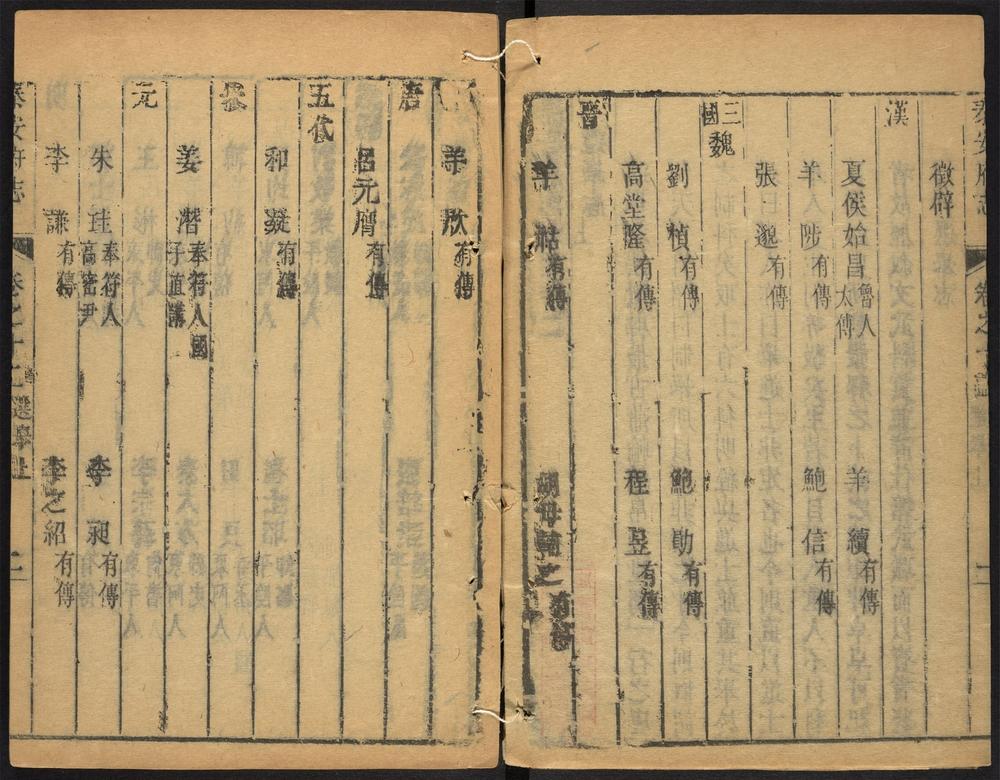 徵辟
漢
夏侯始昌 魯人太傅 羊續 有傳
羊陟 有傳 鮑信 有傳
張邈 有傳
三國魏
劉楨 有傳 鮑勛 有傳
高堂隆 有傳 程昱 有傳
晉
羊祜 有傳 胡母輔之 有傳
羊欣 有傳
唐
呂元膺 有傳
五代
和凝 有傳
宋
姜潛 奉符人國子直講
元
朱珪 奉符人高密尹 李昶 有傳
李謙 有傳 李之紹 有傳
泰安府志 卷之十二 選舉上 二